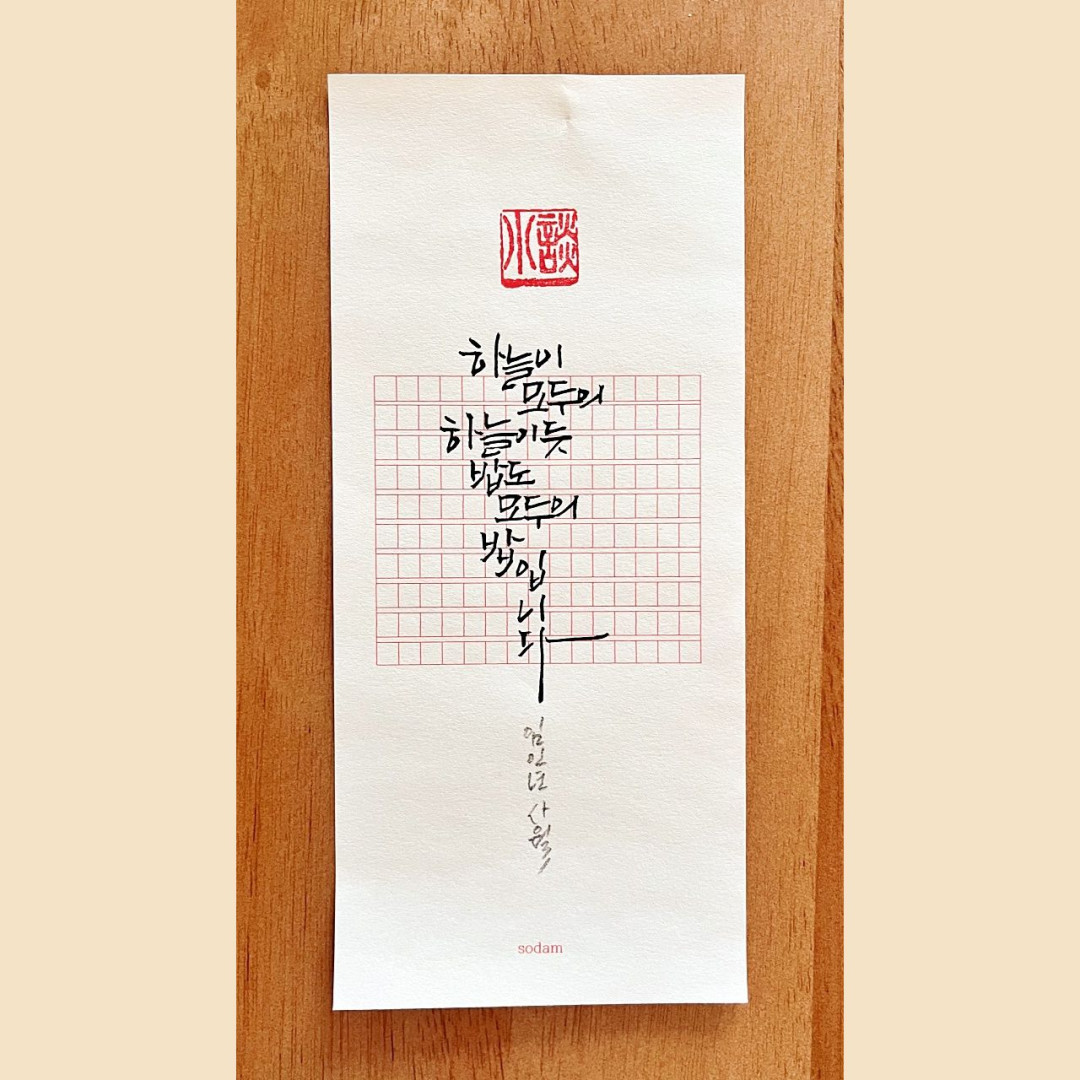 小談
하늘이
모두의
하늘이듯
밥도
모두의
밥입
니
다
임인년 사월
sodam